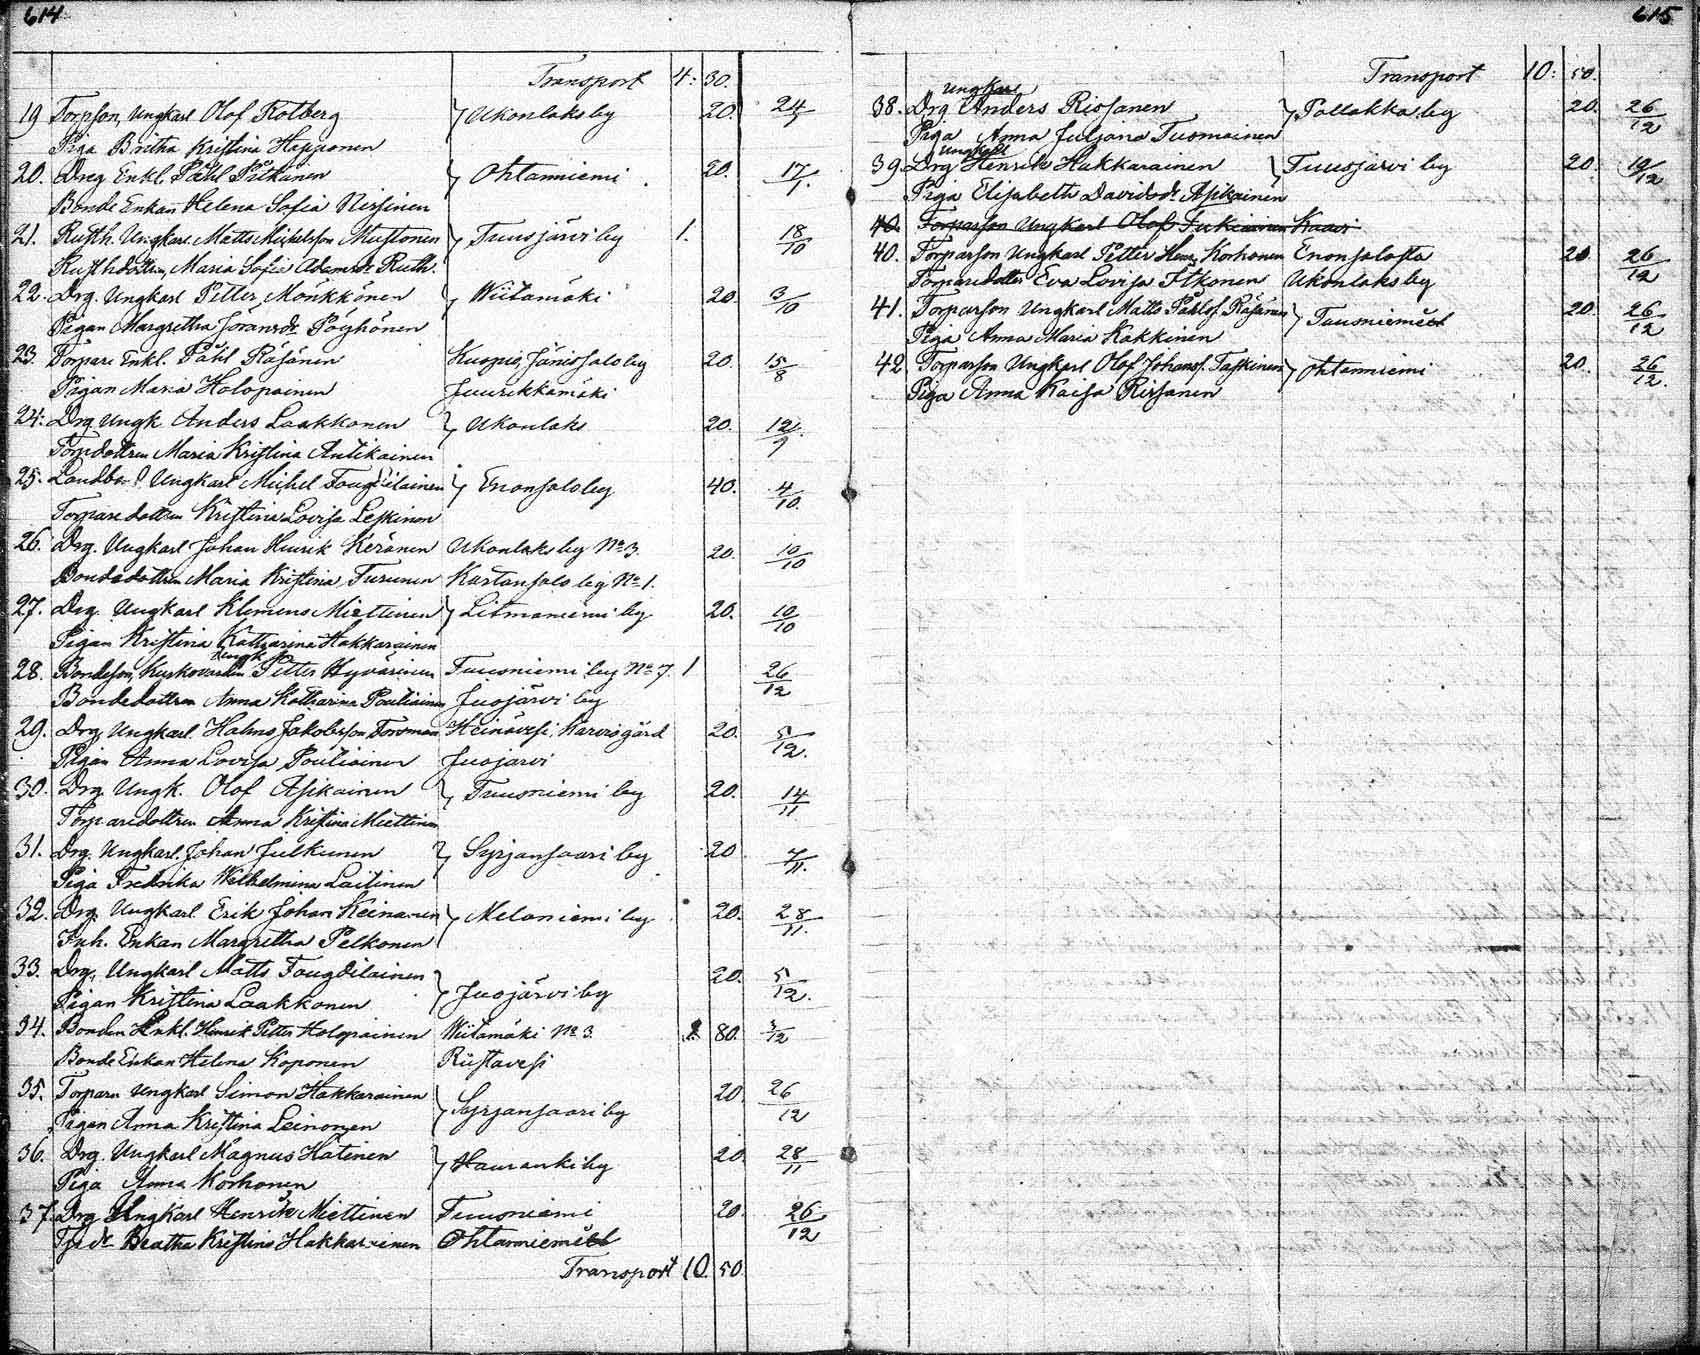 614
Transport 4: 30.
19 Torpson, Ungkarl Olof Rotberg } Ukonlaks by 20. 24/9
Piga Britha Kristina Happonen
20. Dreg Enkl. Påhl Pitkänen } Ohtanniemi 20. 17/1.
Bonde Enkan Helena Sofia Nissinen
21. Rusth. Ungkarl Matts Michelsson Mustonen } Tuusjärvi by 1. 18/10
Rusthdottren, Maria Sofia Adamsdr Ruth.
22. Drg. Ungkarl Petter Mönkkönen } Wiitamäki 20. 3/10
Pigan Margretha Göransdr Pöyhönen
23. Torpare Enkl. Påhl Räsänen Kuopio, Jänissalo by 20. 15/8
Pigan Maria Holopainen Juurikkamäki
24: Drg Ungk. Anders Laakkonen } Ukonlaks 20. 12/9
Torpdottren Maria Kristina Antikainen
25. Landbo Ungkarl Michel Fougdilainen } Enonsalo by 40. 4/10.
Torparedottren Kristina Lovisa Leskinen
26. Drg. Ungkarl Johan Henrik Keränen Ukonlaks by No 3. 20. 10/10
Bondedottren Maria Kristina Turunen Kartansalo by No 1.
27. Drg. Ungkarl Klemens Miettinen } Litmaniemi by 20. 10/10
Pigan Kristina Katharina Hakkarainen
Ungk.
28. Bondeson, Kyrkovärden Petter Hyvärinen Tuusniemi by No 7. 1 26/12
Bondedottren Anna Katharina Pouliainen Juojärvi by
29. Drg Ungkarl. Halms Jakobsson Forsman Heinävesi, Karvio gård 20. 5/12.
Pigan Anna Lovisa Pouliainen Juojärvi
30. Drg Ungk. Olof Asikainen } Tuusniemi by 20. 14/11
Torparedottren Anna Kristina Miettinen
31. Drg. Ungkarl. Johan Julkunen } Syrjänsaari by 20 7/11.
Piga Fredrika Wilhelmina Laitinen
32. Drg. Ungkarl. Erik Johan Keinanen } Melaniemi by 20. 28/11.
Inh. Enkan Margretha Pelkonen
33. Drg. Ungkarl Matts Fougdilainen } Juojärvi by 20. 5/12.
Pigan Kristina Laakkonen
34. Bonden Enkl. Henrik Petter Holopainen Wiitamäki No 3. 80. 3/12
Bonde Enkan Helena Koponen Riistavesi
35. Torparen Ungkarl Simon Hakkarainen } Syrjänsaari by 20 26/12
Pigan Anna Kristina Leinonen
36. Drg. Ungkarl Magnus Hätinen } Hauranki by 20. 28/11
Piga Anna Korhonen
37. Drg Ungkarl Henrik Miettinen Tuusniemi 20. 26/12
Beatha Kristina Hakkarainen Ohtanniemi
Transport 10. 50.
615
Transport 10: 50.
Ungkarl
38. Drg Anders Rissanen } Pallakka by 20. 26/12
Piga Anna Juliana Tuomainen
Ungkarl
39. Drg Henrik Hakkarainen } Tuusjärvi by 20. 19/12
Piga Elisabeth Davidsdr Asikainen
40. Torparson Ungkarl Olof Kaavi
40. Torparson Ungkarl Petter Henr. Korhonen Enonsalosta 20. 26/12
Torparedotter Eva Lovisa Itkonen Ukonlaks by
41. Torparson Ungkarl Matts Påhlsf. Räsänen } Tuusniemi 20. 26/12
Piga Anna Maria Kakkinen
42 Torparson Ungkarl Olof Johansf. Taskinen } Ohtanniemi 20. 26/12.
Piga Anna Kaisa Rissanen